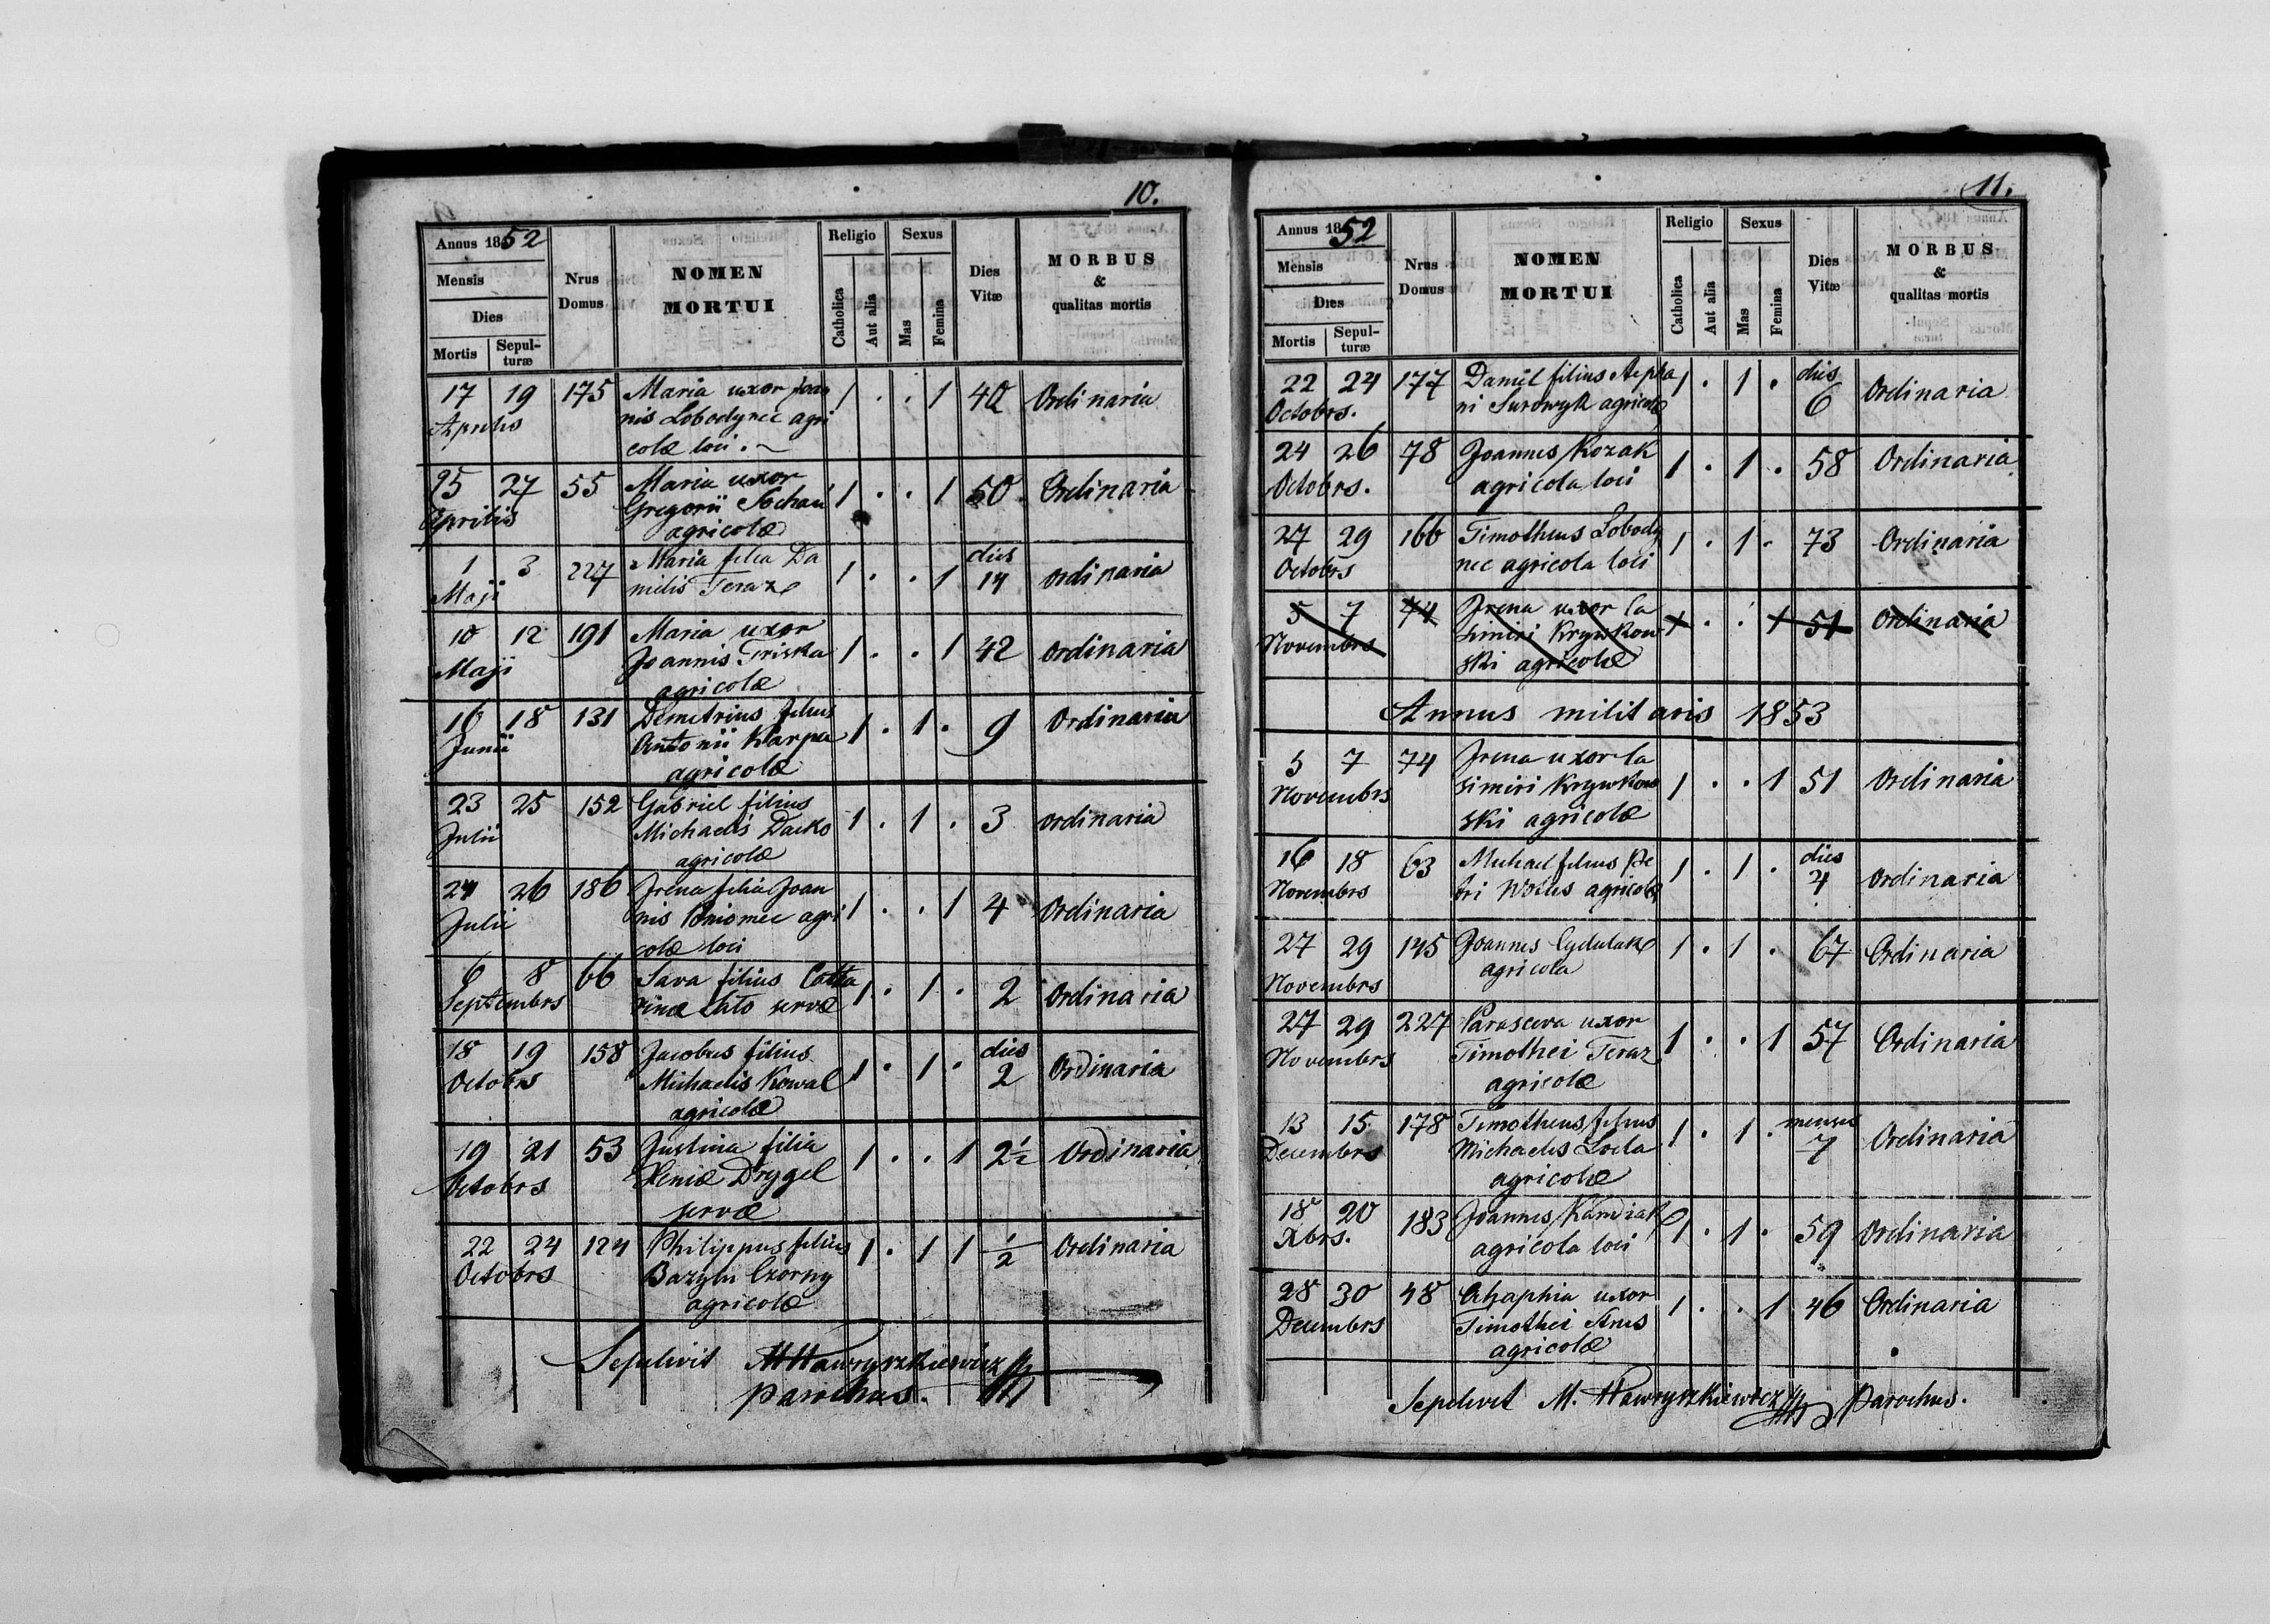 10.
Annus 1852
Mensis
Dies
Mortis
Sepulturæ
Nrus Domus
NOMEN MORTUI
Religio
Catholica
Aut alia
Sexus
Mas
Femina
Dies Vitæ
MORBUS & qualitas mortis
17 19 175 Maria uxor Joan 1 . . 1 40 Ordinaria
Aprilis nis Lobodynec agri
colæ loci . ~
25 27 55 Maria uxor 1 . . 1 50 Ordinaria
Aprilis Gregorii Sochań
agricolæ
1 3 227 Maria filia Da 1 . . 1 dies 14 ordinaria
Maji nielis Teraz
10 12 191 Maria uxor 1 . . 1 42 ordinaria
Maji Joannis Triska
agricolæ
16 18 131 Demetrius filius 1 . 1 . 9 Ordinaria
Junii Antonii Karpa
agricolæ
23 25 152 Gabriel filius 1 . 1 . 3 ordinaria
Julii Michaelis Dacko
agricolæ
24 26 186 Irena filia Joan 1 . . 1 4 Ordinaria
Julii nis agri
colæ loci
6 8 66 Sava filius Catha 1 . 1 . 2 Ordinaria
Septembrs rinæ Lato servæ
18 19 158 Jacobus filius 1 . 1 . dies 2 Ordinaria
Octobrs Michaelis Kowal
agricolæ
19 21 53 Justina filia 1 . . 1 2½ Ordinaria
Octobrs Xeniæ Drygel
servæ
22 24 124 Philippus filius 1 . 1 1 ½ Ordinaria
Octobrs Bazylii Czorny
agricolæ
Sepelivit M Hawryszkiewicz
parochus.
11.
Annus 1852
Mensis
Dies
Mortis
Sepulturæ
Nrus Domus
NOMEN MORTUI
Religio
Catholica
Aut alia
Sexus
Mas
Femina
Dies Vitæ
MORBUS & qualitas mortis
22 24 177 Daniel filius Stepha 1 . 1 . dies 6 Ordinaria
Octobrs. ni Surowyk agricolæ
24 26 78 Joannes Kozak 1 . 1 . 58 Ordinaria
Octobrs. agricola loci
27 29 166 Timotheus Lobody 1 . 1 . 73 Ordinaria
Octobrs nec agricola loci
5 7 74 Irena uxor Ca 1 . . 1 51 Ordinaria
Novembrs simiri Krywkow
ski agricolæ
Annus militaris 1853
5 7 74 Irena uxor Ca 1 . . 1 51 Ordinaria
Novembrs simiri Krywkow
ski agricolæ
16 18 63 Michael filius Pe 1 . 1 . dies 4 Ordinaria
Novembrs tri agricolæ
27 29 145 Joannes Cydulak 1 . 1 . 67 Ordinaria
Novembrs agricola
27 29 227 Parasceva uxor 1 . . 1 57 Ordinaria
Novembrs Timothei Teraz
agricolæ
13 15 178 Timotheus filius 1 . 1 . menses 7 Ordinaria
Decembrs Michaelis
agricolæ
18 20 183 Joannes 1 . 1 . 59 Ordinaria
Xbrs. agricola loci
28 30 48 Ahaphia uxor 1 . . 1 46 Ordinaria
Decembrs Timothei Strus
agricolæ
Sepelivit M. Hawryszkiewicz Parochus.